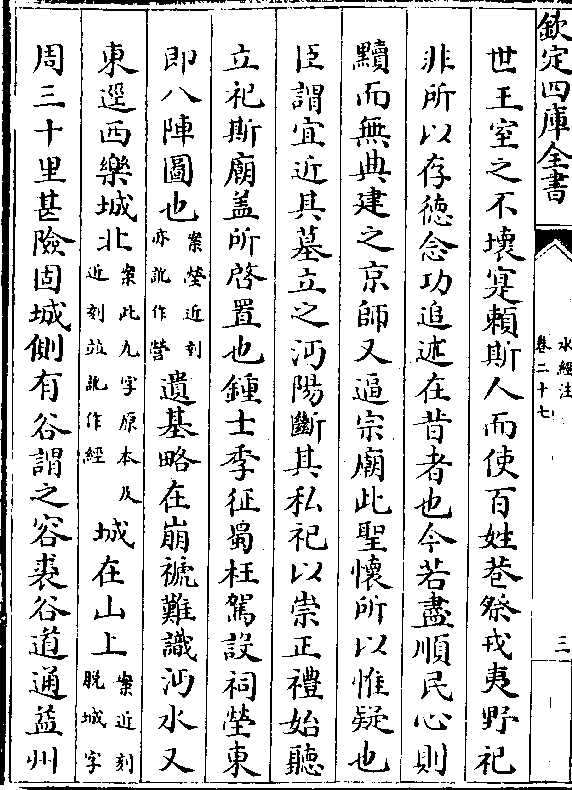 欽定四庫全書
水經注
卷二十七
三
世王室之不壞寔賴斯人而使百姓巷祭戎夷野祀
非所以存德念功追述在昔者也今若盡順民心則
黷而無典建之京師又逼宗廟此聖懷所以惟疑也
臣謂宜近其墓立之沔陽斷其私祀以崇正禮始聽
立祀斯廟盖所啓置也鍾士季征蜀枉駕設祠塋東
即八陣圖也案塋近刻亦訛作營遺基略在崩褫難識沔水又
東逕西樂城北案此九字原本及近刻竝訛作經城在山上案近刻脫城字
周三十里甚險固城側有谷謂之容裘谷道通益州